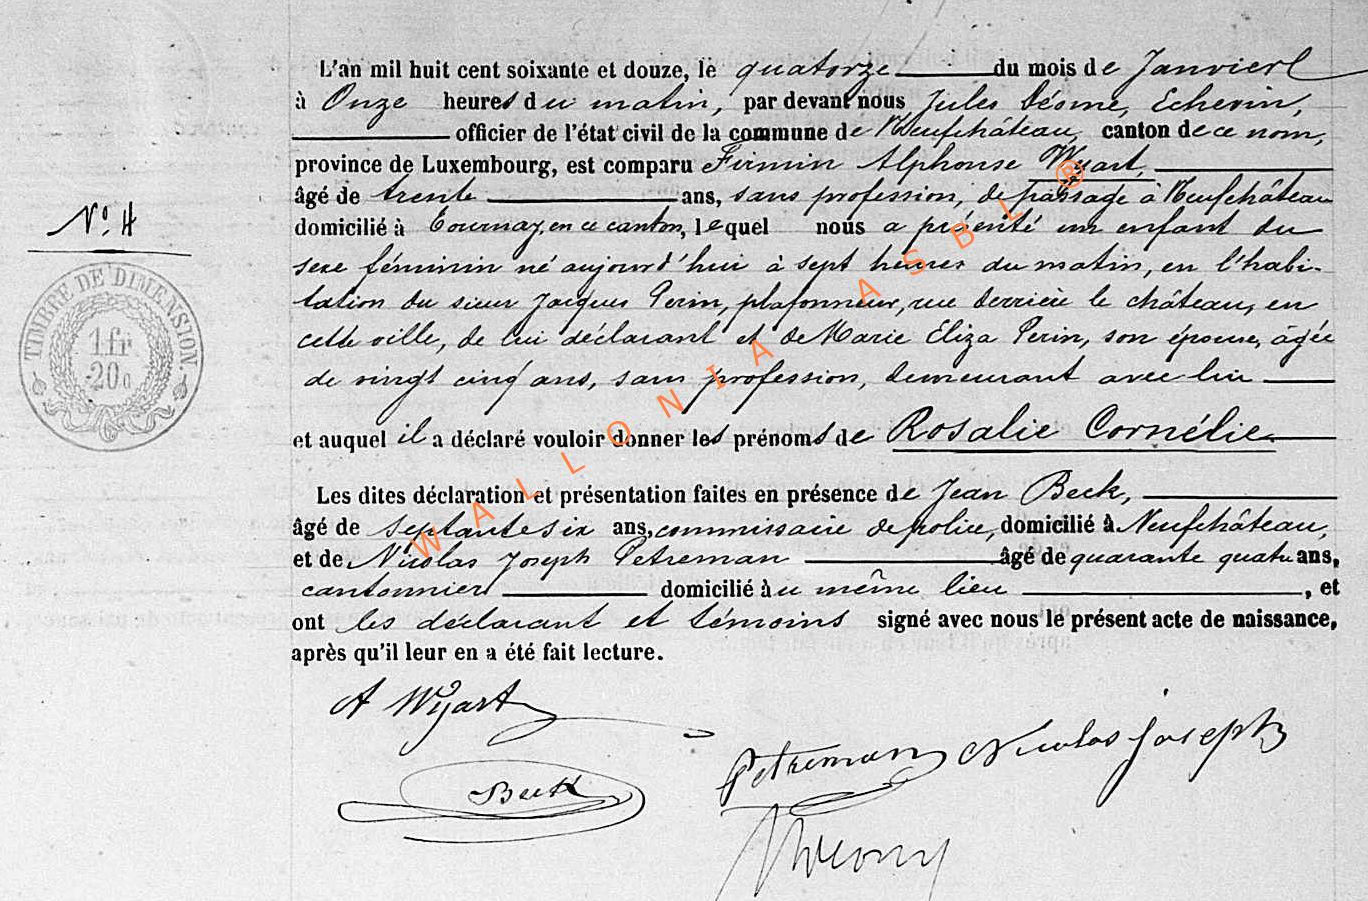 L'an mil huit cent soixante et douze, le quatorze du mois de Janvier
à Onze heures du matin, par devant nous Jules Déome, Echevin,
officier de l'état civil de la commune de Neufchâteau, canton de ce nom,
province de Luxembourg, est comparu Firmin Alphonse Wyart,
âgé de trente ans, sans profession, de passage à Neufchâteau
domicilié à Tournay, en ce canton, lequel nous a présenté un enfant du
sexe féminin né aujourd'hui à sept heures du matin, en l'habi-
tation du sieur Jacques Perin, plafonneur, rue derrière le château, en
cette ville, de lui déclarant et de Marie Eliza Perin, son épouse, âgée
de vingt cinq ans, sans profession, demeurant avec lui
et auquel il a déclaré vouloir donner les prénoms de Rosalie Cornélie
Les dites déclaration et présentation faites en présence de Jean Beck,
âgé de septante six ans, commissaire de police, domicilié à Neufchâteau,
et de Nicolas Joseph Petreman âgé de quarante quatre ans,
cantonnier domicilié au même lieu, et
ont les déclarant et témoins signé avec nous le présent acte de naissance,
après qu'il leur en a été fait lecture.
N° 4
TIMBRE DE DIMENSION.
1 fr
20c
A Wyart
Petreman Nicolas Joseph
Beck
WALLONIA ASBL ®